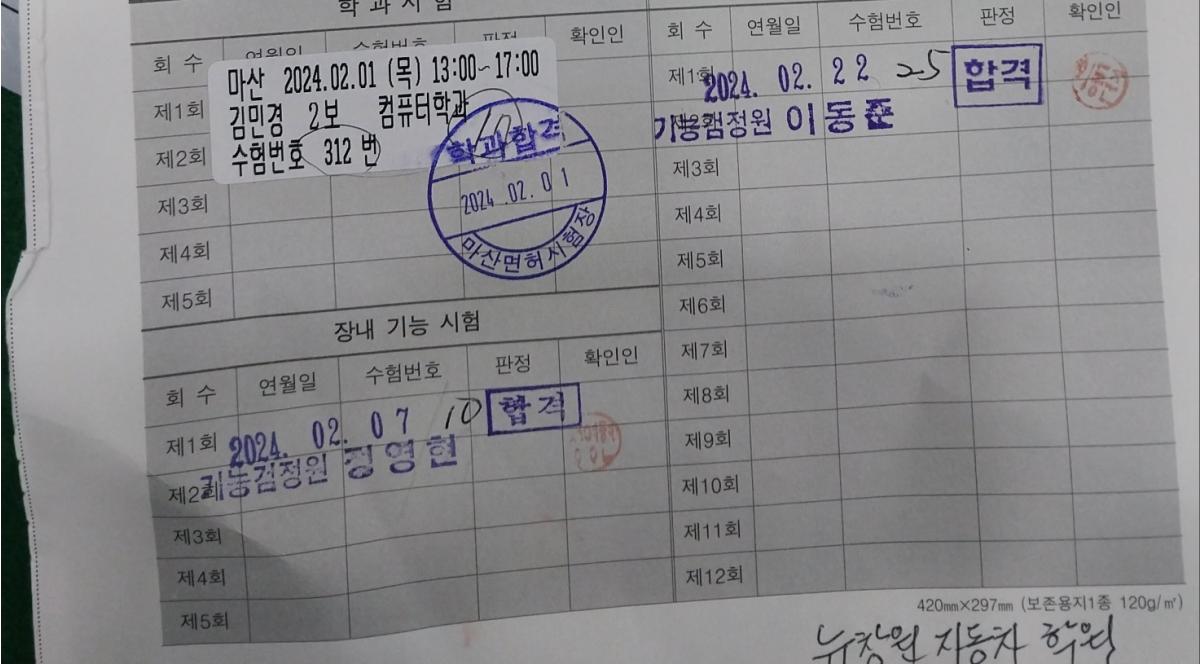 학 과 시 험
회 수 연월일 수험번호 판정 확인인
마산 2024.02.01 (목) 13:00~17:00
김민경 2보 컴퓨터학과
수험번호 312 번
제1회
제2회
제3회
제4회
제5회
학과합격
2024.02.01
마산면허시험장
장내 기능 시험
회 수 연월일 수험번호 판정 확인인
제1회 2024. 02. 07 10 합격
기능검정원 정영현
제2회
제3회
제4회
제5회
회 수 연월일 수험번호 판정 확인인
제1회 2024. 02. 22 25 합격
기능검정원 이동준
제3회
제4회
제5회
제6회
제7회
제8회
제9회
제10회
제11회
제12회
420㎜×297㎜ (보존용지1종 120g/㎡)
뉴창원 자동차 학원